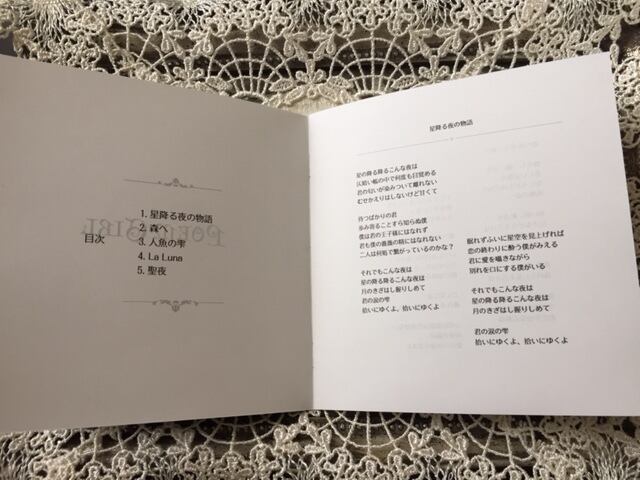 目次
1. 星降る夜の物語
2. 森へ
3. 人魚の雫
4. La Luna
5. 聖夜
星降る夜の物語
星の降る降るこんな夜は
仄暗い帳の中で何度も目覚める
君の匂いが染みついて離れない
むせかえりはしないけど甘くて
待つばかりの君
歩み寄ることすら知らぬ僕
僕は君の王子様にはなれず
君も僕の薔薇の精にはなれない
二人は何処で繋がっているのかな?
それでもこんな夜は
星の降る降るこんな夜は
月のきざはし握りしめて
君の涙の雫
拾いにゆくよ、拾いにゆくよ
眠れずふいに星空を見上げれば
恋の終わりに酔う僕がみえる
君に愛を囁きながら
別れを口にする僕がいる
それでもこんな夜は
星の降る降るこんな夜は
月のきざはし握りしめて
君の涙の雫
拾いにゆくよ、拾いにゆくよ